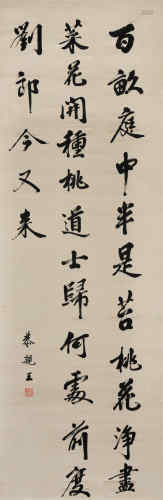 百畝庭中半是苔桃花净盡
菜花開種桃道士歸何處前度
劉郎今又来
恭親王